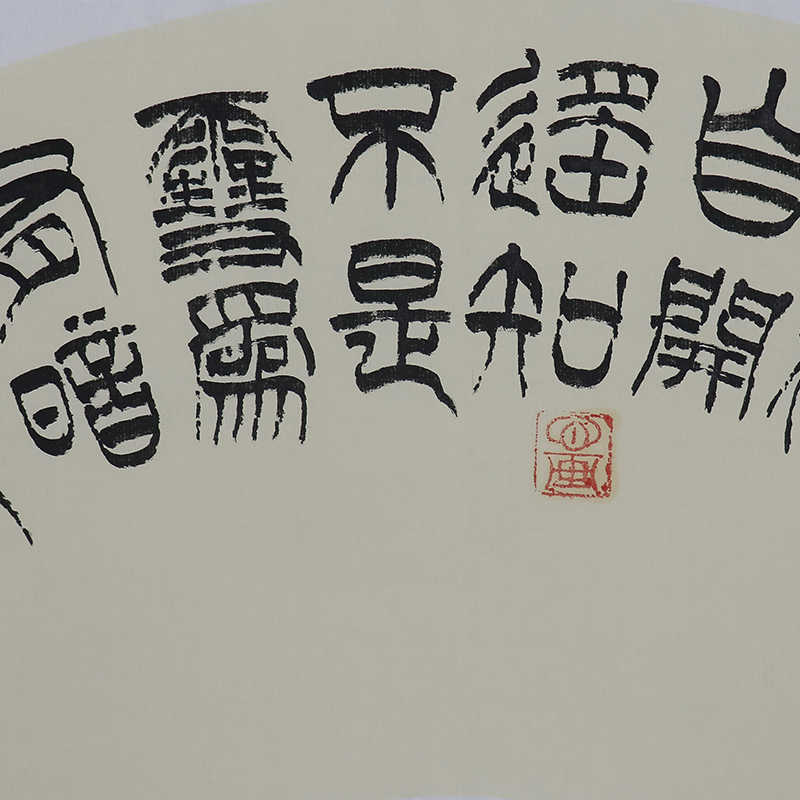 自開
遙知
不是
雪為
有暗